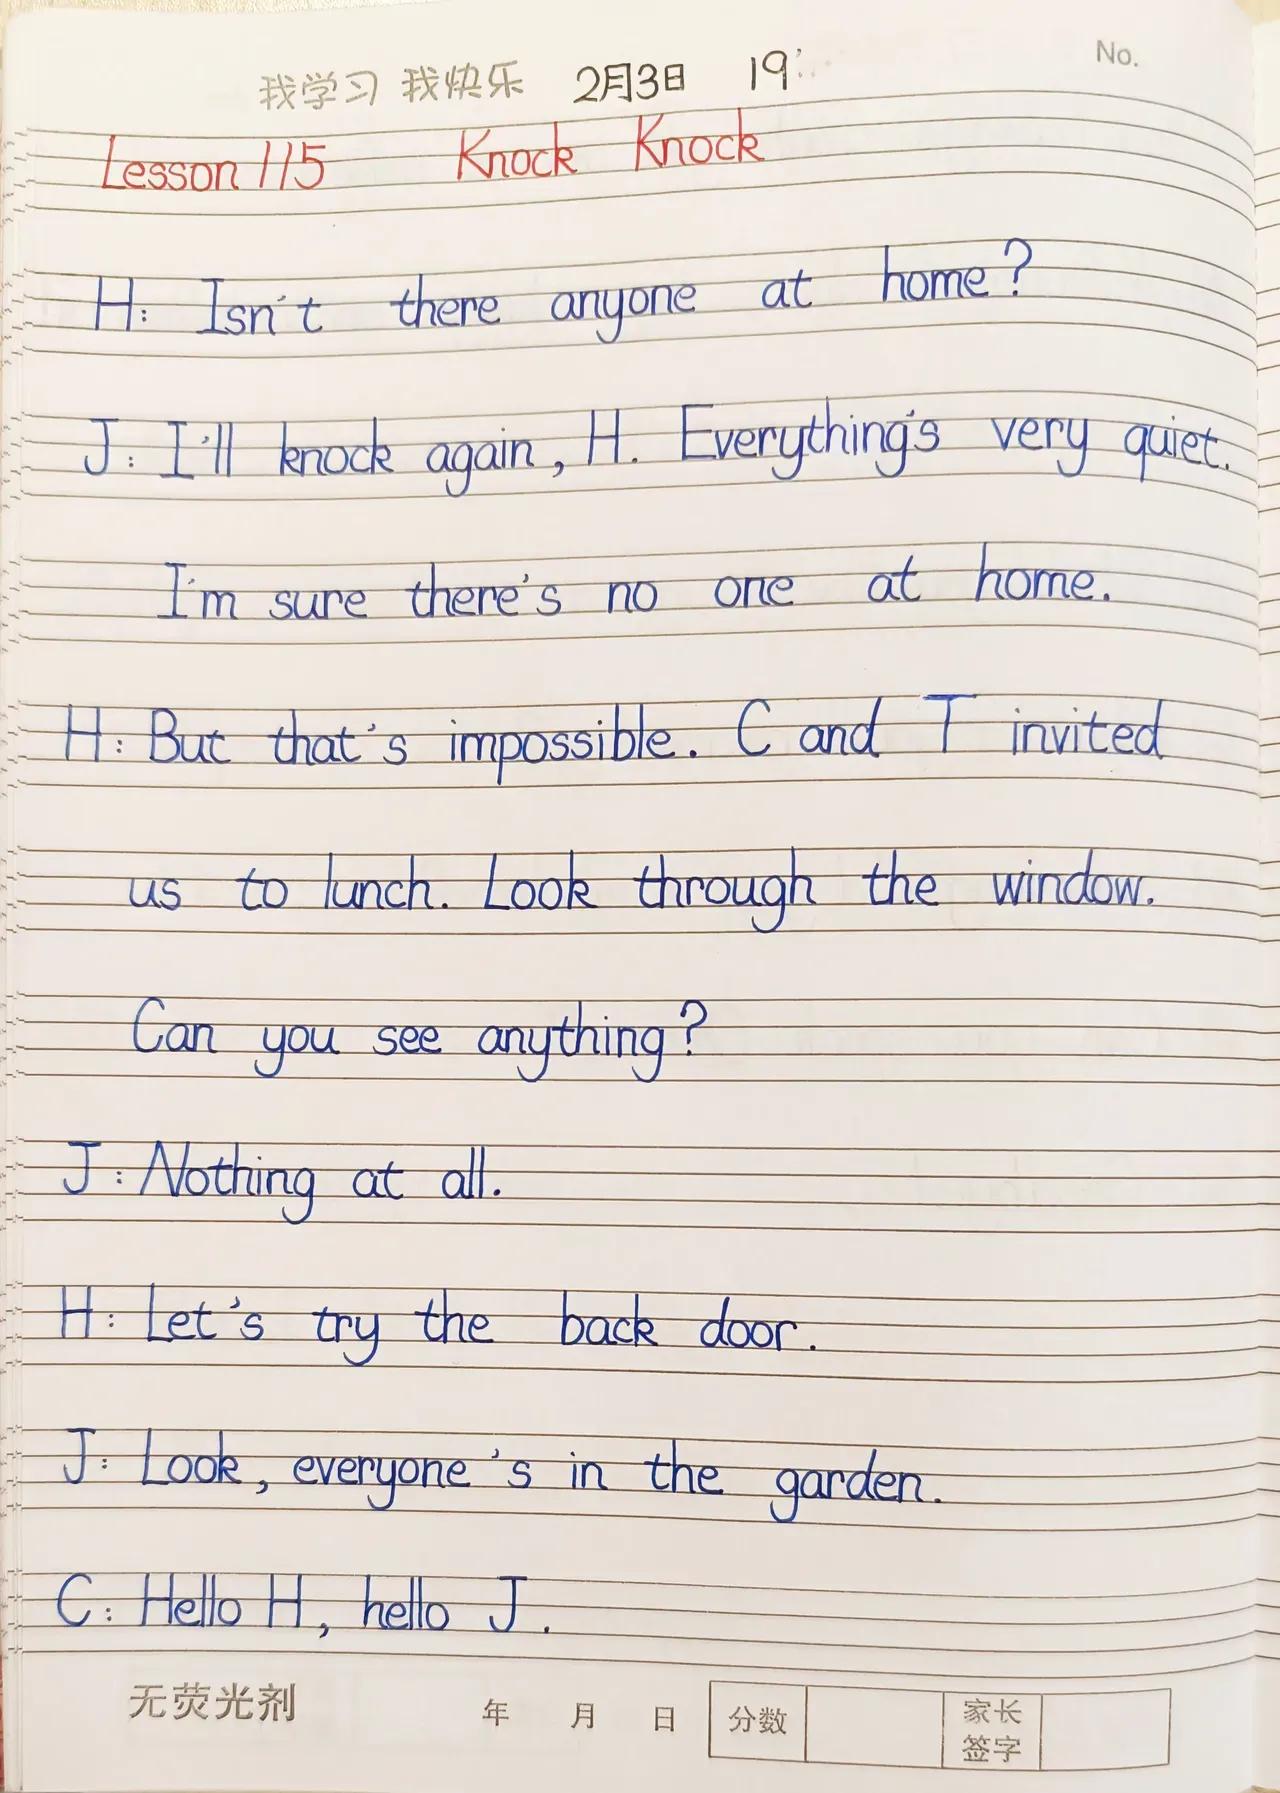 No.
我学习 我快乐 2月3日 19:
Lesson 115 Knock Knock
H: Isn't there anyone at home?
J: I'll knock again, H. Everything's very quiet.
I'm sure there's no one at home.
H: But that's impossible. C and T invited
us to lunch. Look through the window.
Can you see anything?
J: Nothing at all.
H: Let's try the back door.
J: Look, everyone's in the garden.
C: Hello H, hello J.
无荧光剂 年 月 日 分数 家长签字